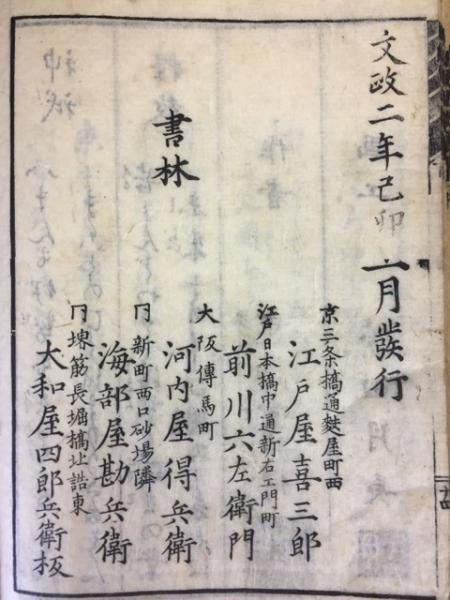 文政二年己卯 一月發行
書林
京三条橋通麩屋町西
江戸屋喜三郎
江戸日本橋中通新右エ門町
前川六左衛門
大阪傳馬町
河内屋得兵衛
同新町西口砂場隣
海部屋勘兵衛
同堺筋長堀橋北詰東
大和屋四郎兵衛板
十四